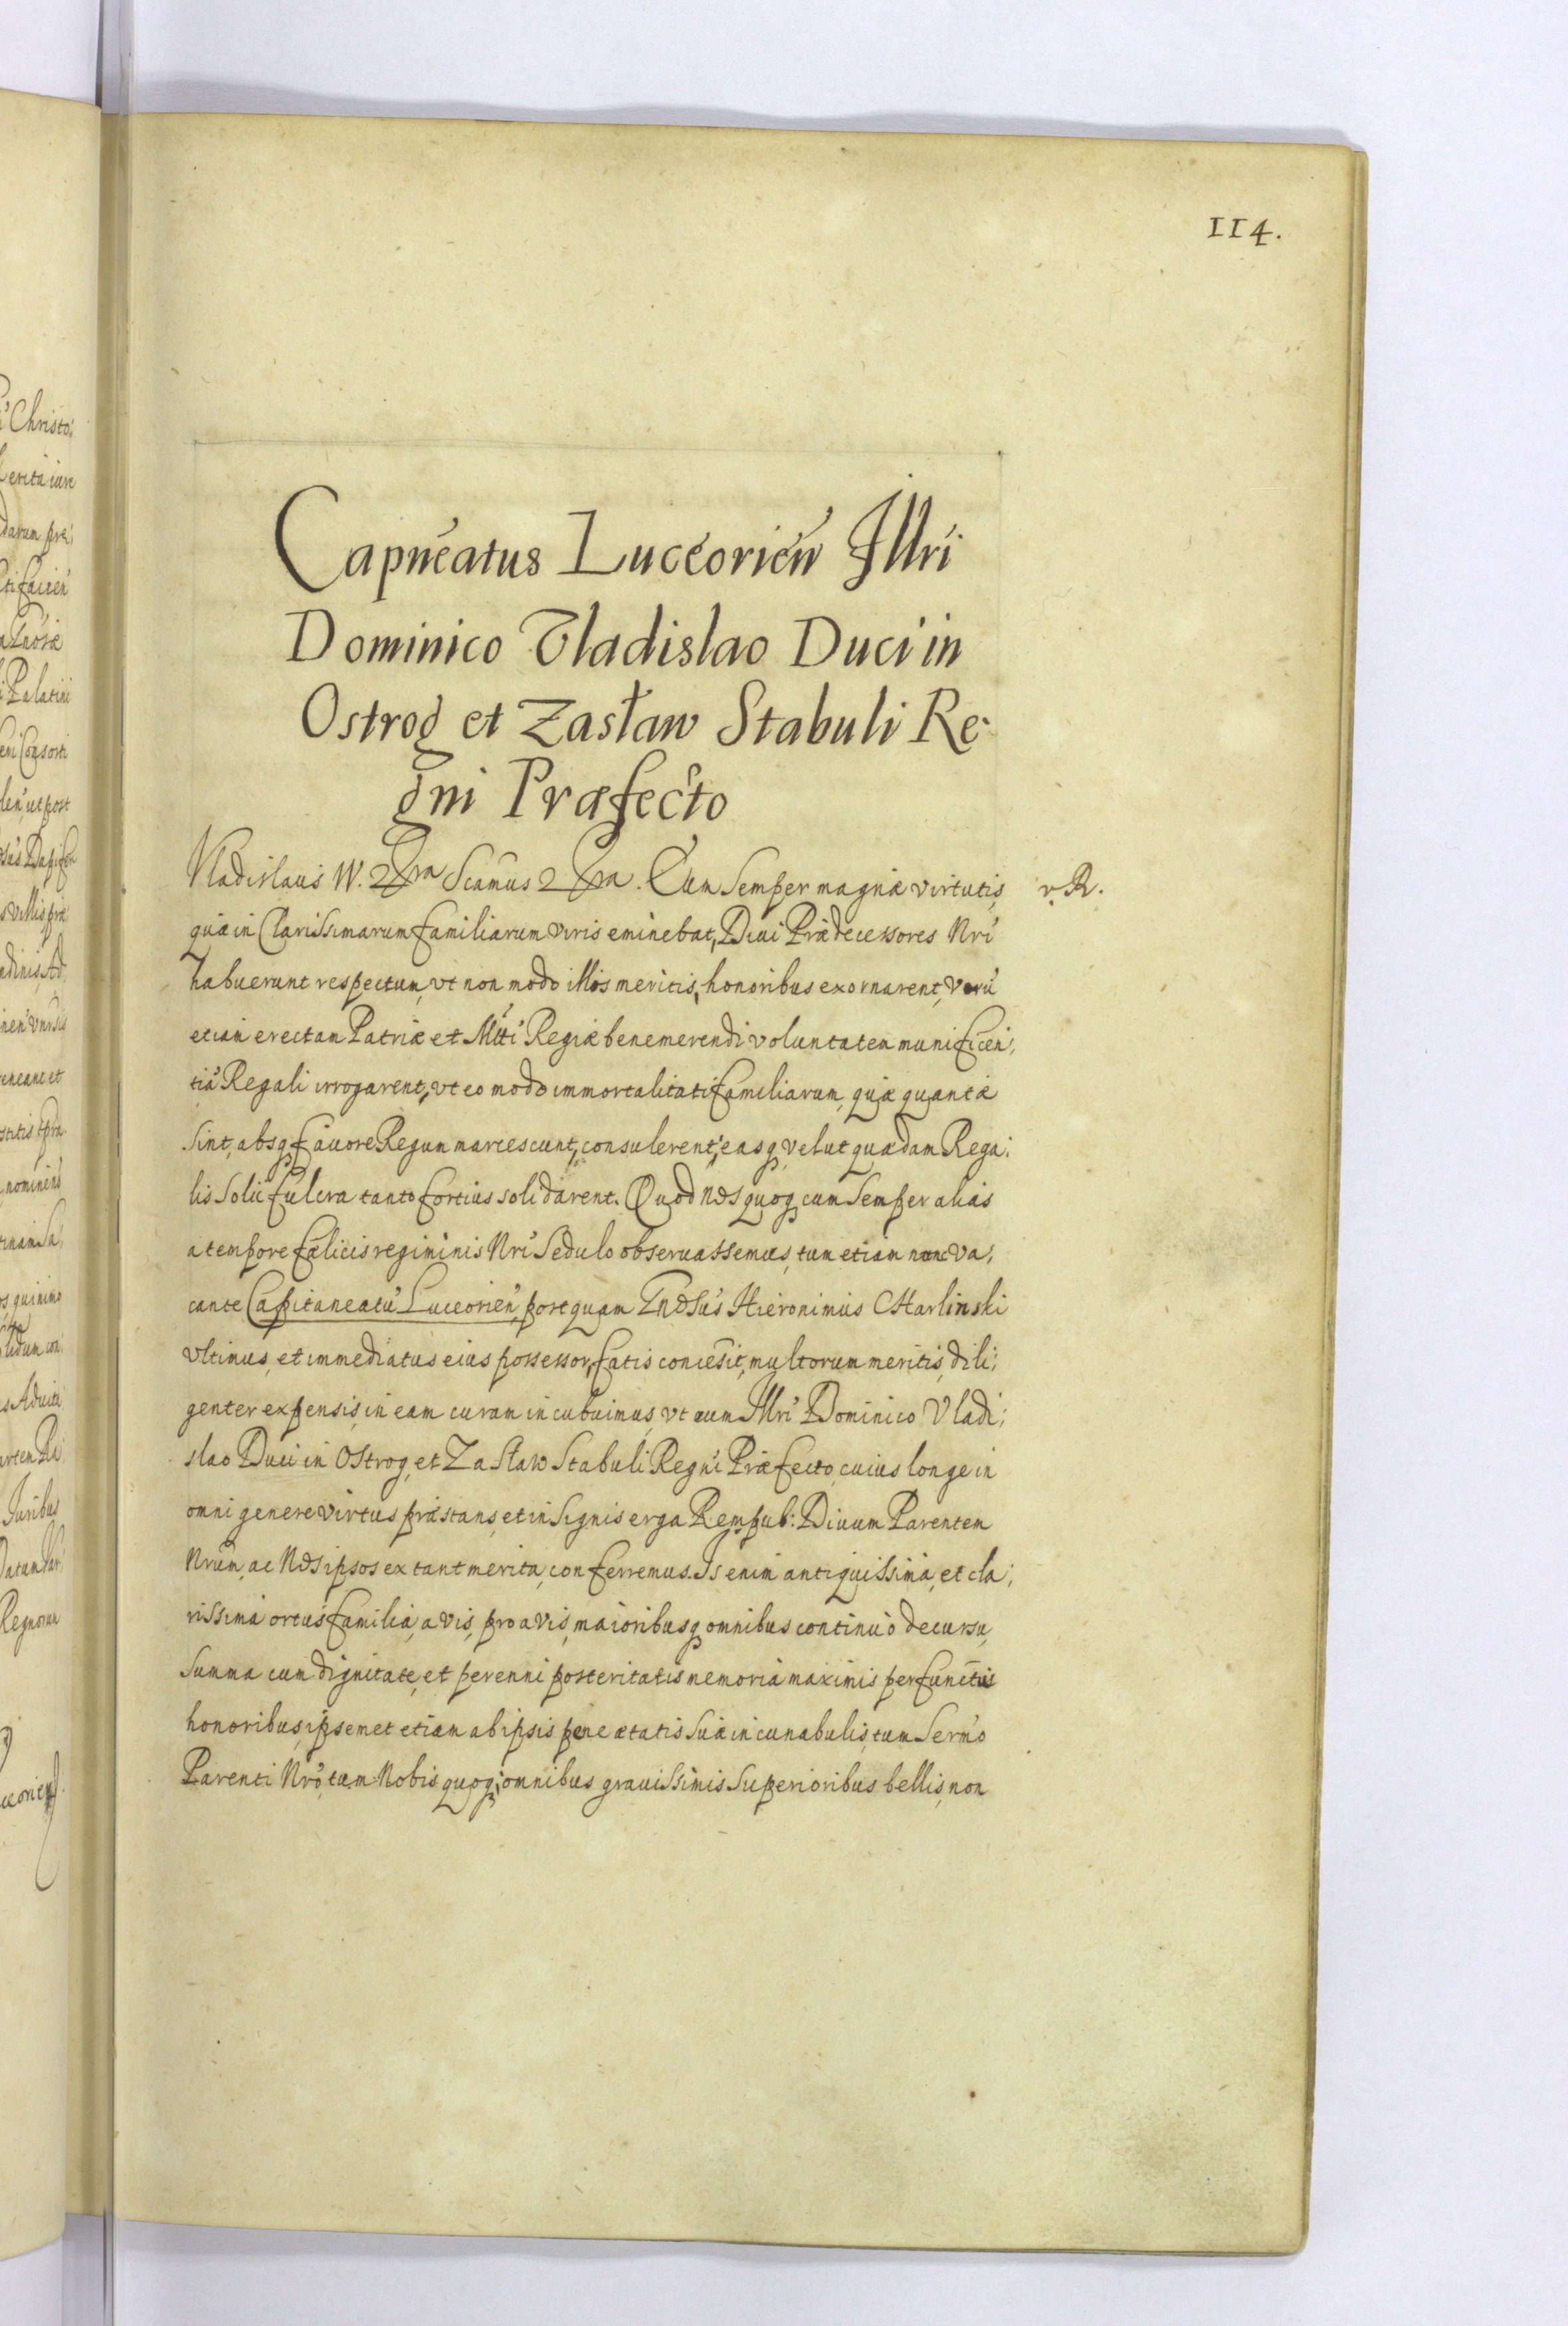 114.
Capn̄eatus Luceorien̄ Illri
Dominico Vladislao Duci in
Ostrog et Zasław Stabuli Re-
gni Præfecto
Vladislaus IV. Scam̄us . Cum Semper magnæ virtutis, v. R.
quæ in Clarissimarum familiarum viris eminebat, Diui Prædecessores Nr̄i
habuerunt respectum, vt non modo illos meritis, honoribus exornarent, verū
etiam erectam Patriæ et Mtti Regiæ benemerendi voluntatem munificen;
tiâ Regali irrogarent, vt eo modo immortalitati familiarum, quæ quantæ
sint, absq fauore Regum marcescunt, consulerent, easq, velut quædam Rega:
lis Solii fulcra tanto fortius solidarent. Quod Nos quoq cum Semper aliàs
a tempore fælicis regiminis Nr̄i Sedulo obseruassemus, tum etiam nunc va;
cante Capitaneatū Luceorien̄, postquam Gnosūs Hieronimus Charlinski
vltimus, et immediatus eius possessor, fatis concesit, multorum meritis, dili;
genter expensis, in eam curam incubuimus, vt eum Illri Dominico Vladi;
slao Duci in Ostrog, et Zasław Stabuli Regni Præfecto, cuius longe in
omni genere virtus præstans, et insignis erga Rempub: Diuum Parentem
Nrūm, ac Nosipsos extant merita, conferremus. Is enim antiquissimâ, et cla;
rissimâ ortus familiâ, avis, proavis, maioribusq omnibus continuò decursu,
summa cum dignitate, et perenni posteritatis memoriâ maximis perfunctis
honoribus, ipsemet etiam ab ipsis pene ætatis suæ incunabulis, tum Serm̄o
Parenti Nrō, tum Nobis quoq; omnibus grauissimis Superioribus bellis, non